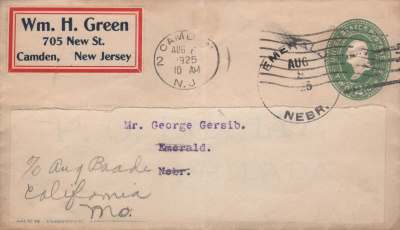 Wm. H. Green
705 New St.
Camden, New Jersey
CAMDEN
AUG
1925
10 AM
N.J.
2
EMERALD
AUG
NEBR.
Mr. George Gersib.
Emerald.
Nebr.
% Aug Baade
California
Mo.